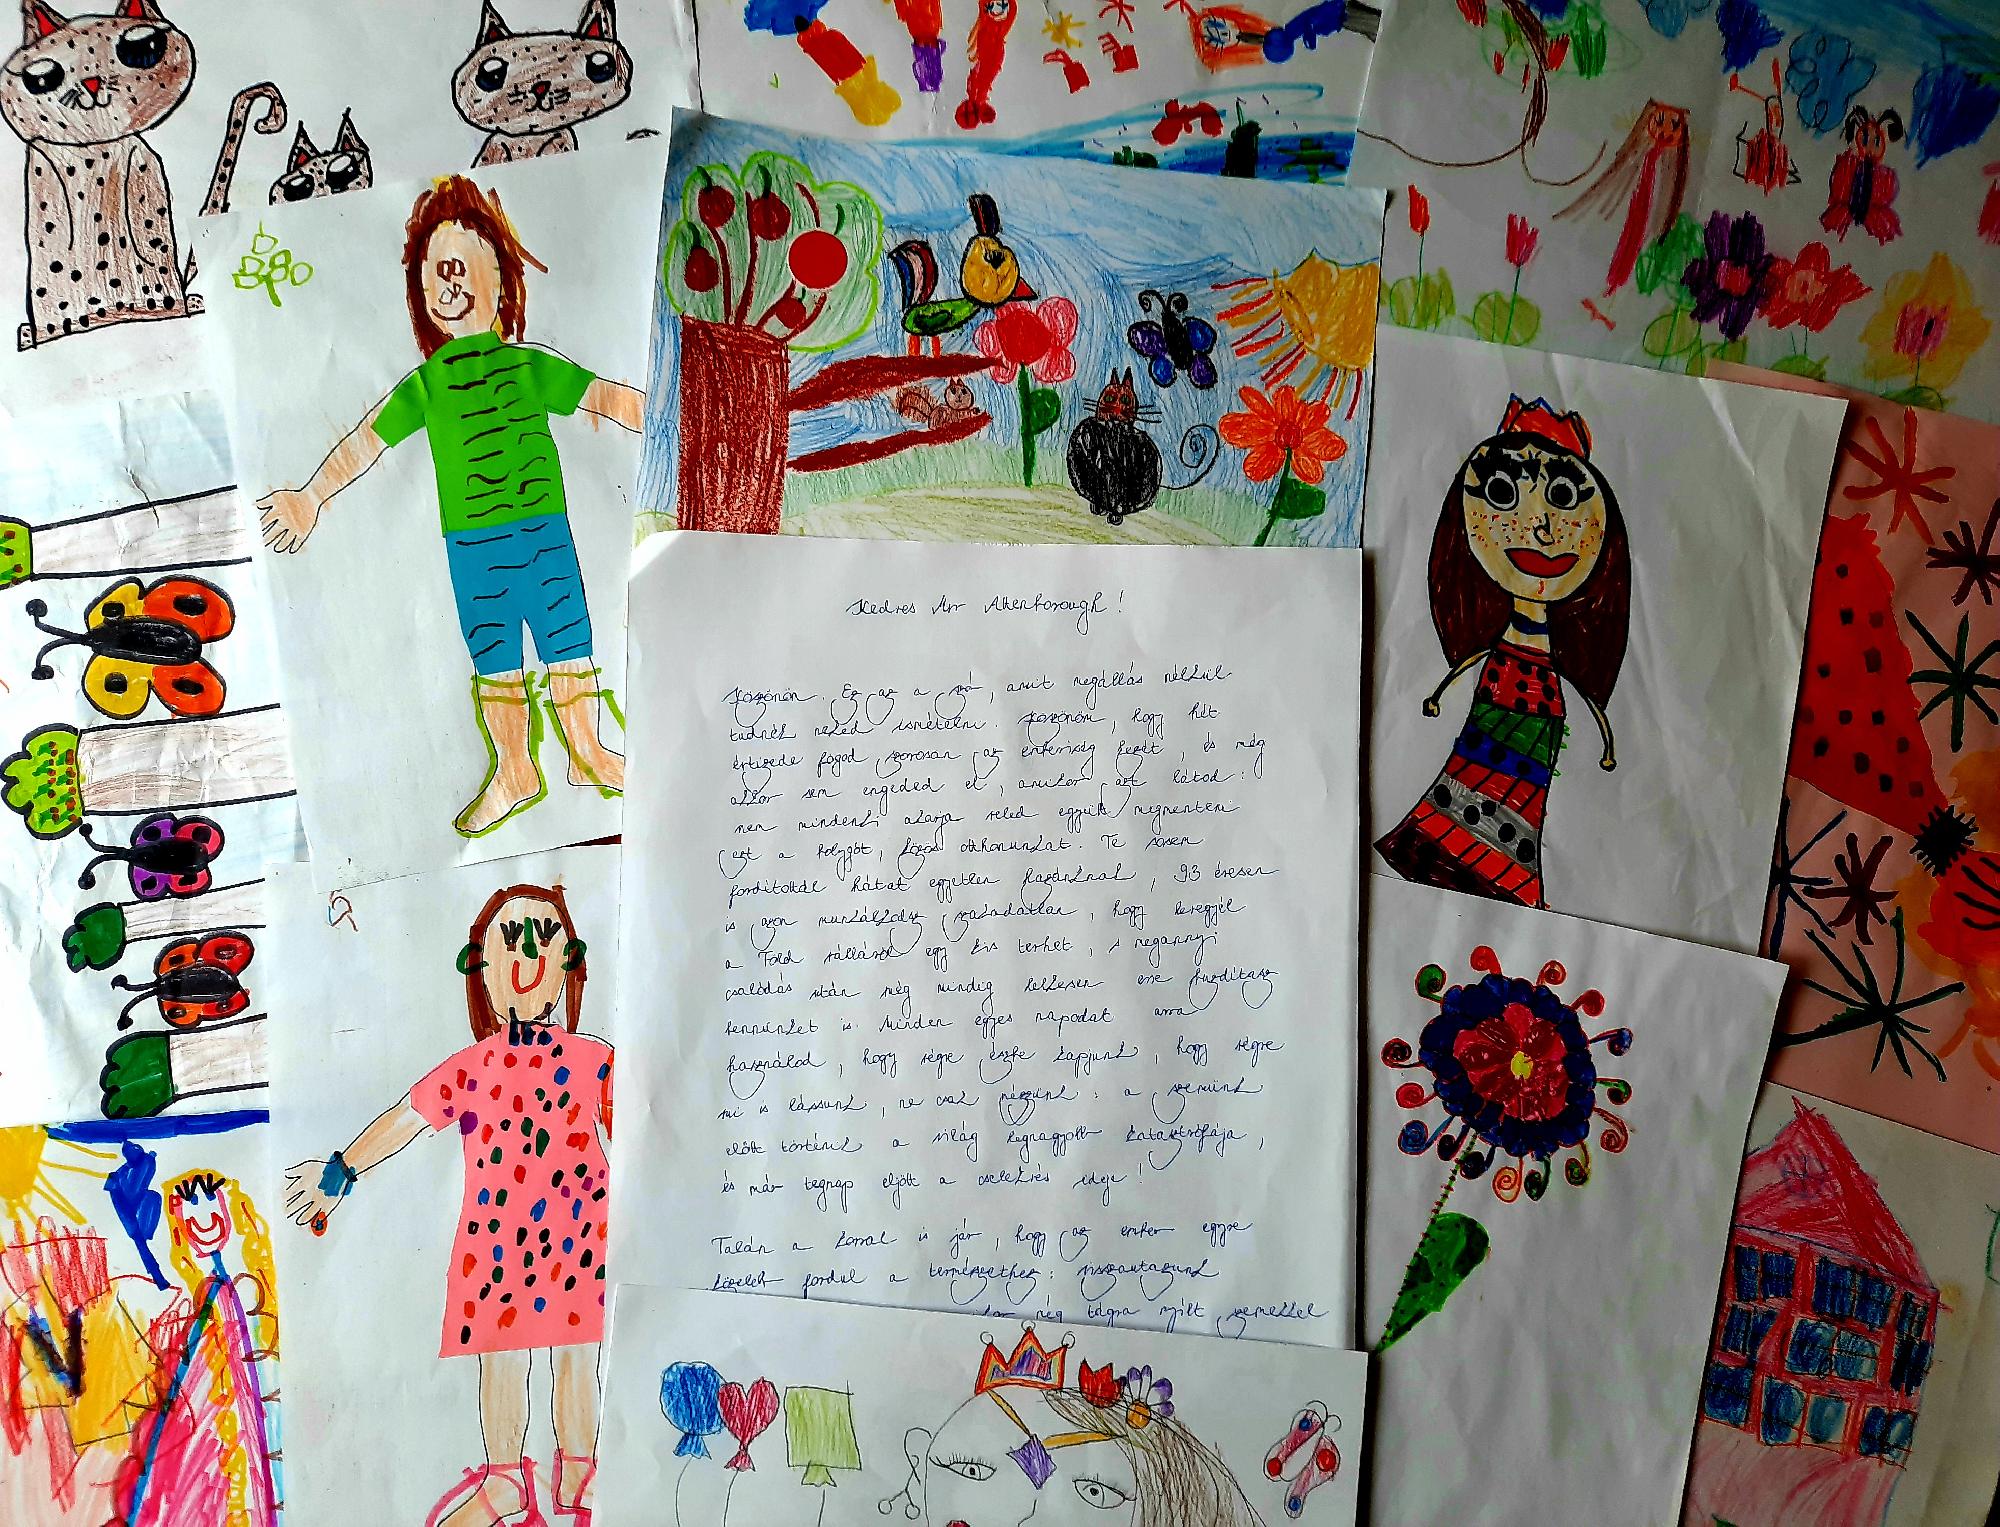 Kedves Mr Attenborough!
Köszönöm. Ez az a szó, amit megállás nélkül
tudnék neked ismételni. Köszönöm, hogy hét
évtizede fogod szorosan az emberiség kezét, és még
akkor sem engeded el, amikor azt látod:
nem mindenki akarja veled együtt megmenteni
ezt a bolygót, közös otthonunkat. Te sosem
fordítottál hátat egyetlen hazánknak, 93 évesen
is azon munkálkodsz szakadatlan, hogy levegyél
a Föld válláról egy kis terhet, s megannyi
csalódás után még mindig lelkesen erre buzdítasz
bennünket is. Minden egyes napodat arra
használod, hogy végre észbe kapjunk, hogy végre
mi is lássunk, ne csak nézzünk: a szemünk
előtt történik a világ legnagyobb katasztrófája,
és már tegnap eljött a cselekvés ideje!
Talán a korral is jár, hogy az ember egyre
közelebb fordul a természethez: visszautazunk
még tágra nyílt szemekkel